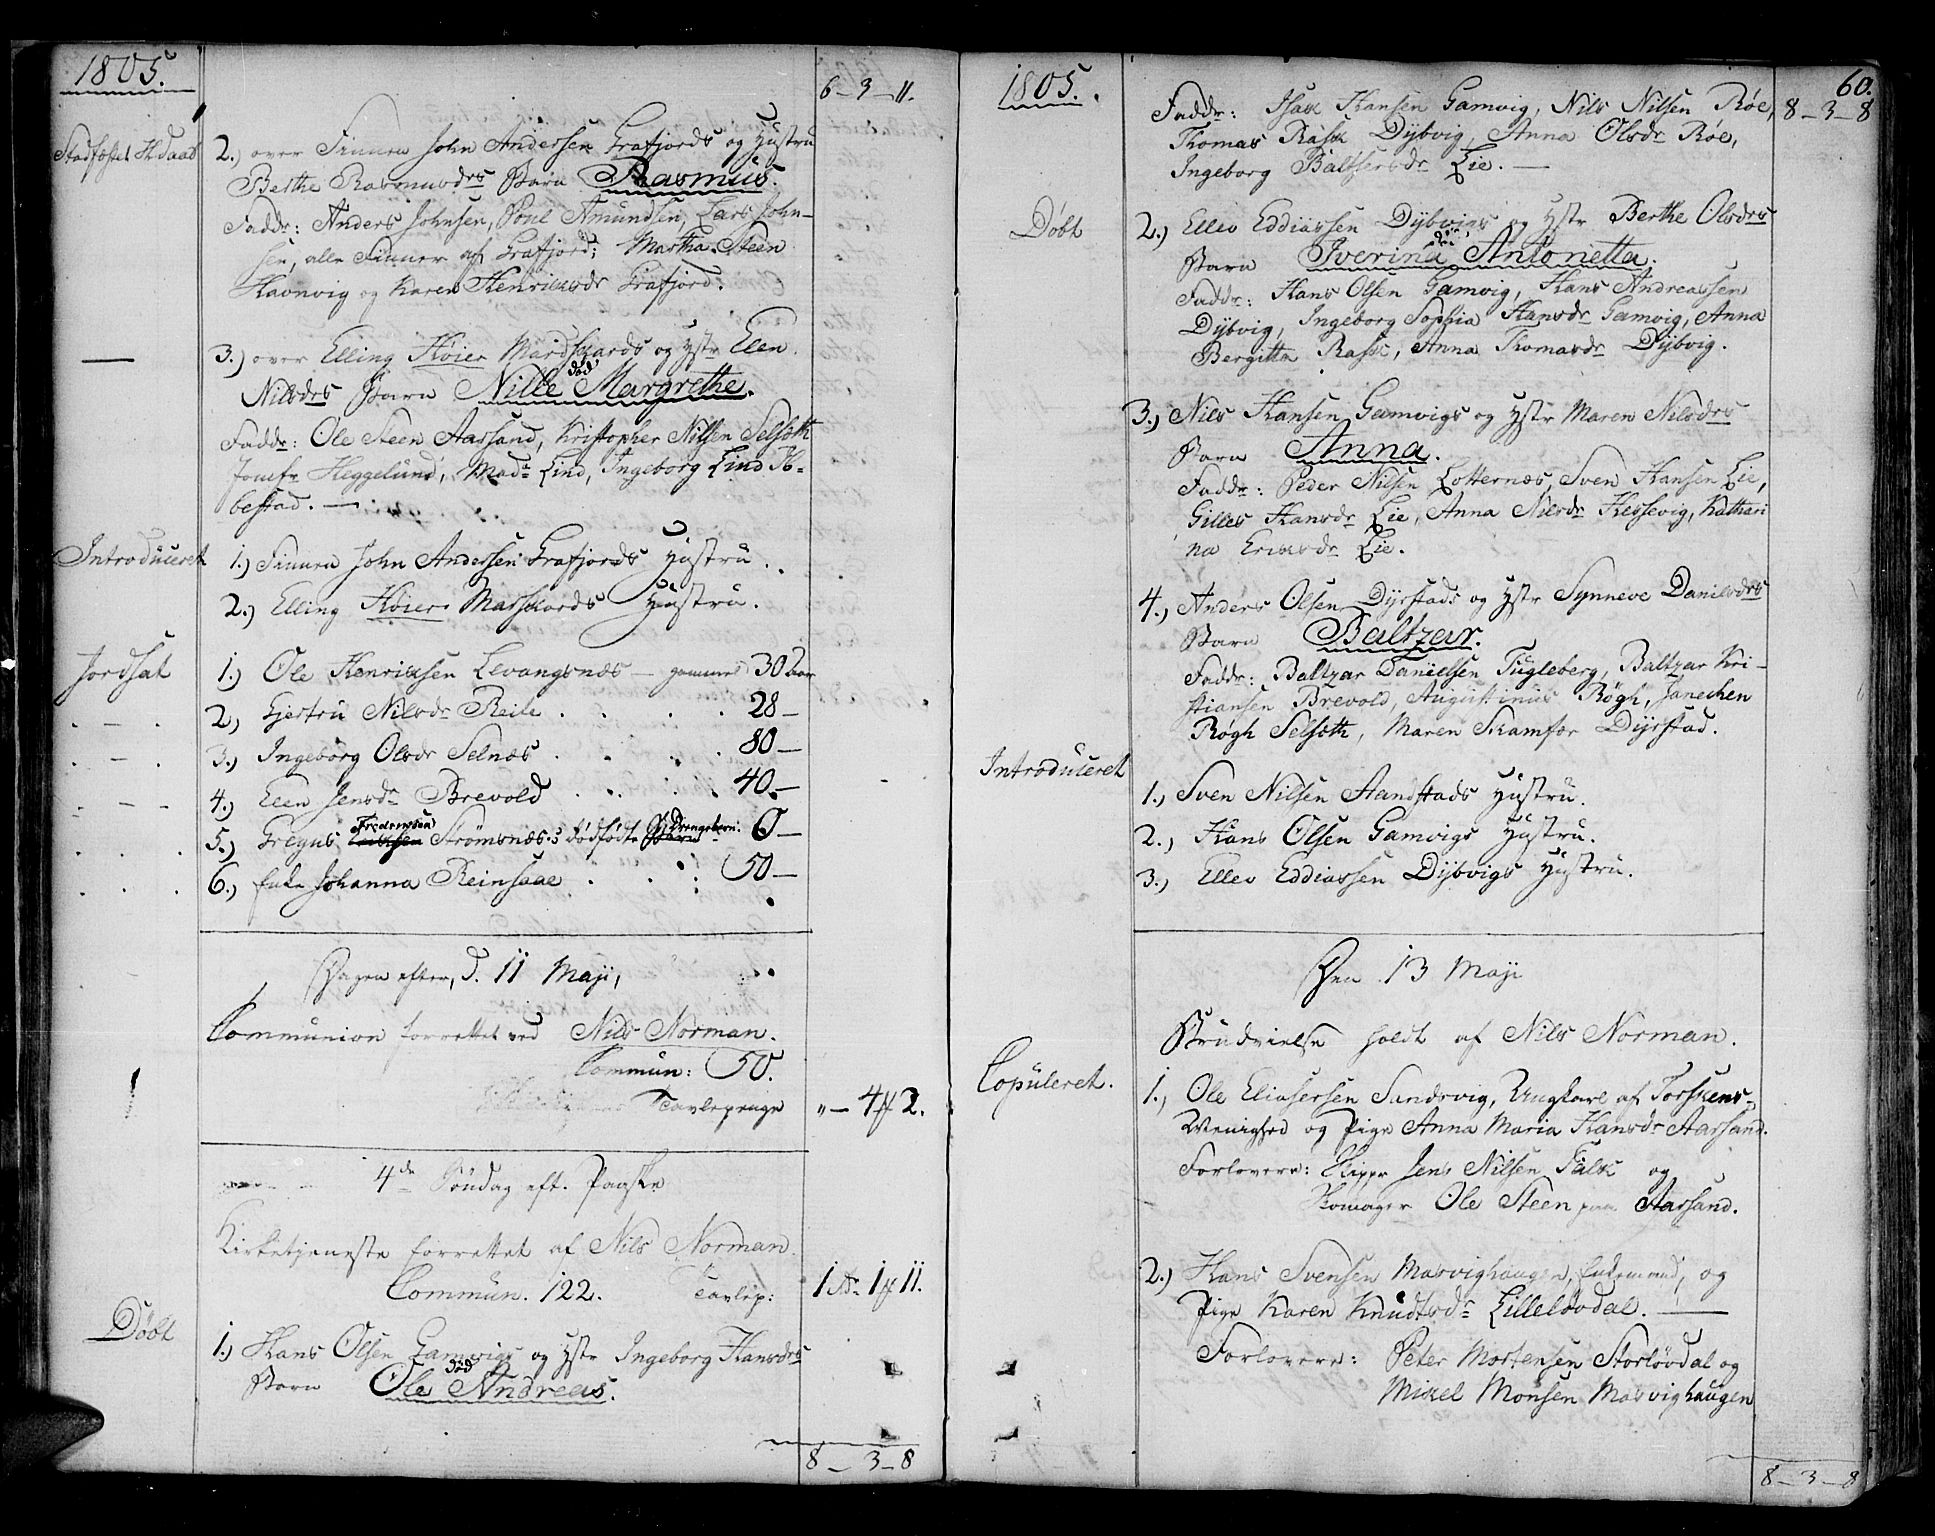 1805.
6-3-11.
Stadfæstet H. Daab
2.) over Finnen John Andersen Grafjords og Hustru
Berthe Rasmusdrs Barn Rasmus.
Faddr: Anders Johnsen, Poul Amundsen, Lars John-
sen, alle Finner af Grafjord; Martha Steen
Havnvig og Karen Henriksdr Grafjord.
— 3.) over Elling Høier Mardskards og Hstr Elen
Nilsdrs Barn Nille Margrethe.
død
Faddr: Ole Steen Aarsand, Kristopher Nilsen Selfoth
Jomfr Heggelund, Madr Lind, Ingeborg Lind Ib-
bestad. —
Introduceret
1.) Finnen John Andersen Grafjords Hustru.
2.) Elling Høiers Marskards Hustru.
Jordsat
1.) Ole Henriksen Levangsnæs — gammel 30 aar
2.) Gjertru Nilsdr Reite . . . . 28 —
3.) Ingeborg Olsdr Selnæs . . . . 80 —
4.) Elen Jensdr Brevold . . . . 40. —
5.) Gregus Fredriksen Strømsnæs's dødfødte Drengebarn: 0 —
6.) Enke Johanna Reinsaae . . . 50 —
Dagen efter, d. 11 Maji,
Communion forrettet ved Nils Norman.
Commun: 50.
Tavlepenge " — 4 ₰ 2.
4de Søndag eft. Paaske
Kirketjeneste forrettet af Nils Norman.
Commun. 122. Tavlep: 1 rd. 1 ₰ 11.
Døbt
1.) Hans Olsen Gamvigs og Hstr Ingeborg Hansdrs
død
Barn Ole Andreas.
8-3-8
1805.
60.
8-3-8
Faddr: Isak Hansen Gamvig, Nils Nilsen Røe,
Thomas Rask Dybvig, Anna Olsdr Røe,
Ingeborg Baltsersdr Lie. —
Døbt
2.) Ellev Eddiassen Dybvigs og Hstr Berthe Olsdrs
død
Barn Iverina Antonietta.
Faddr: Hans Olsen Gamvig, Hans Andreassen
Dybvig, Ingeborg Sophia Hansdr Gamvig, Anna
Bergitta Rask, Anna Thomasdr Dybvig.
3.) Nils Hansen Gamvigs og Hstr Maren Nilsdrs
Barn Anna.
Faddr: Peder Nilsen Lotternæs, Sven Hansen Lie,
Gilles Hansdr Lie, Anna Nilsdr Hessevig, Kathari
na Eriksdr Lie.
4.) Anders Olsen Dyrstads og Hstr Synneve Danilsdrs
Barn Baltzar.
Faddr: Baltzar Danielsen Fugleberg, Baltzar Kri-
stiansen Brevold, Augustinus Røgh, Janechen
Røgh Selfoth, Maren Skamfær Dyrstad.
Introduceret
1.) Sven Nilsen Aandstads Hustru.
2.) Hans Olsen Gamvigs Hustru.
3.) Ellev Eddiassen Dybvigs Hustru.
Den 13 Maji
Brudvielse holdt af Nils Norman.
Copuleret.
1.) Ole Eliasersen Sandsvig, Ungkarl af Torskens-
Menighed og Pige Anna Maria Hansdr Aarsand.
Forlovere: Klipper Jens Nilsen Falk og
Komager Ole Steen paa Aarsand.
2.) Hans Svensen Masvighaugen, Enkemand, og
Pige Karen Knudtsdr Lillelövdal. —
Forlovere: Peter Mortensen Storlövdal og
Mikel Monsen Masvighaugen
8-3-8